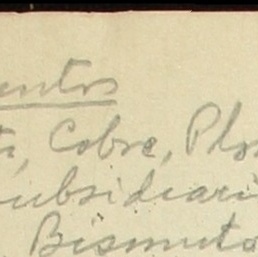 entos
ta, Cobre, Plo
subsidiari
Bismuto